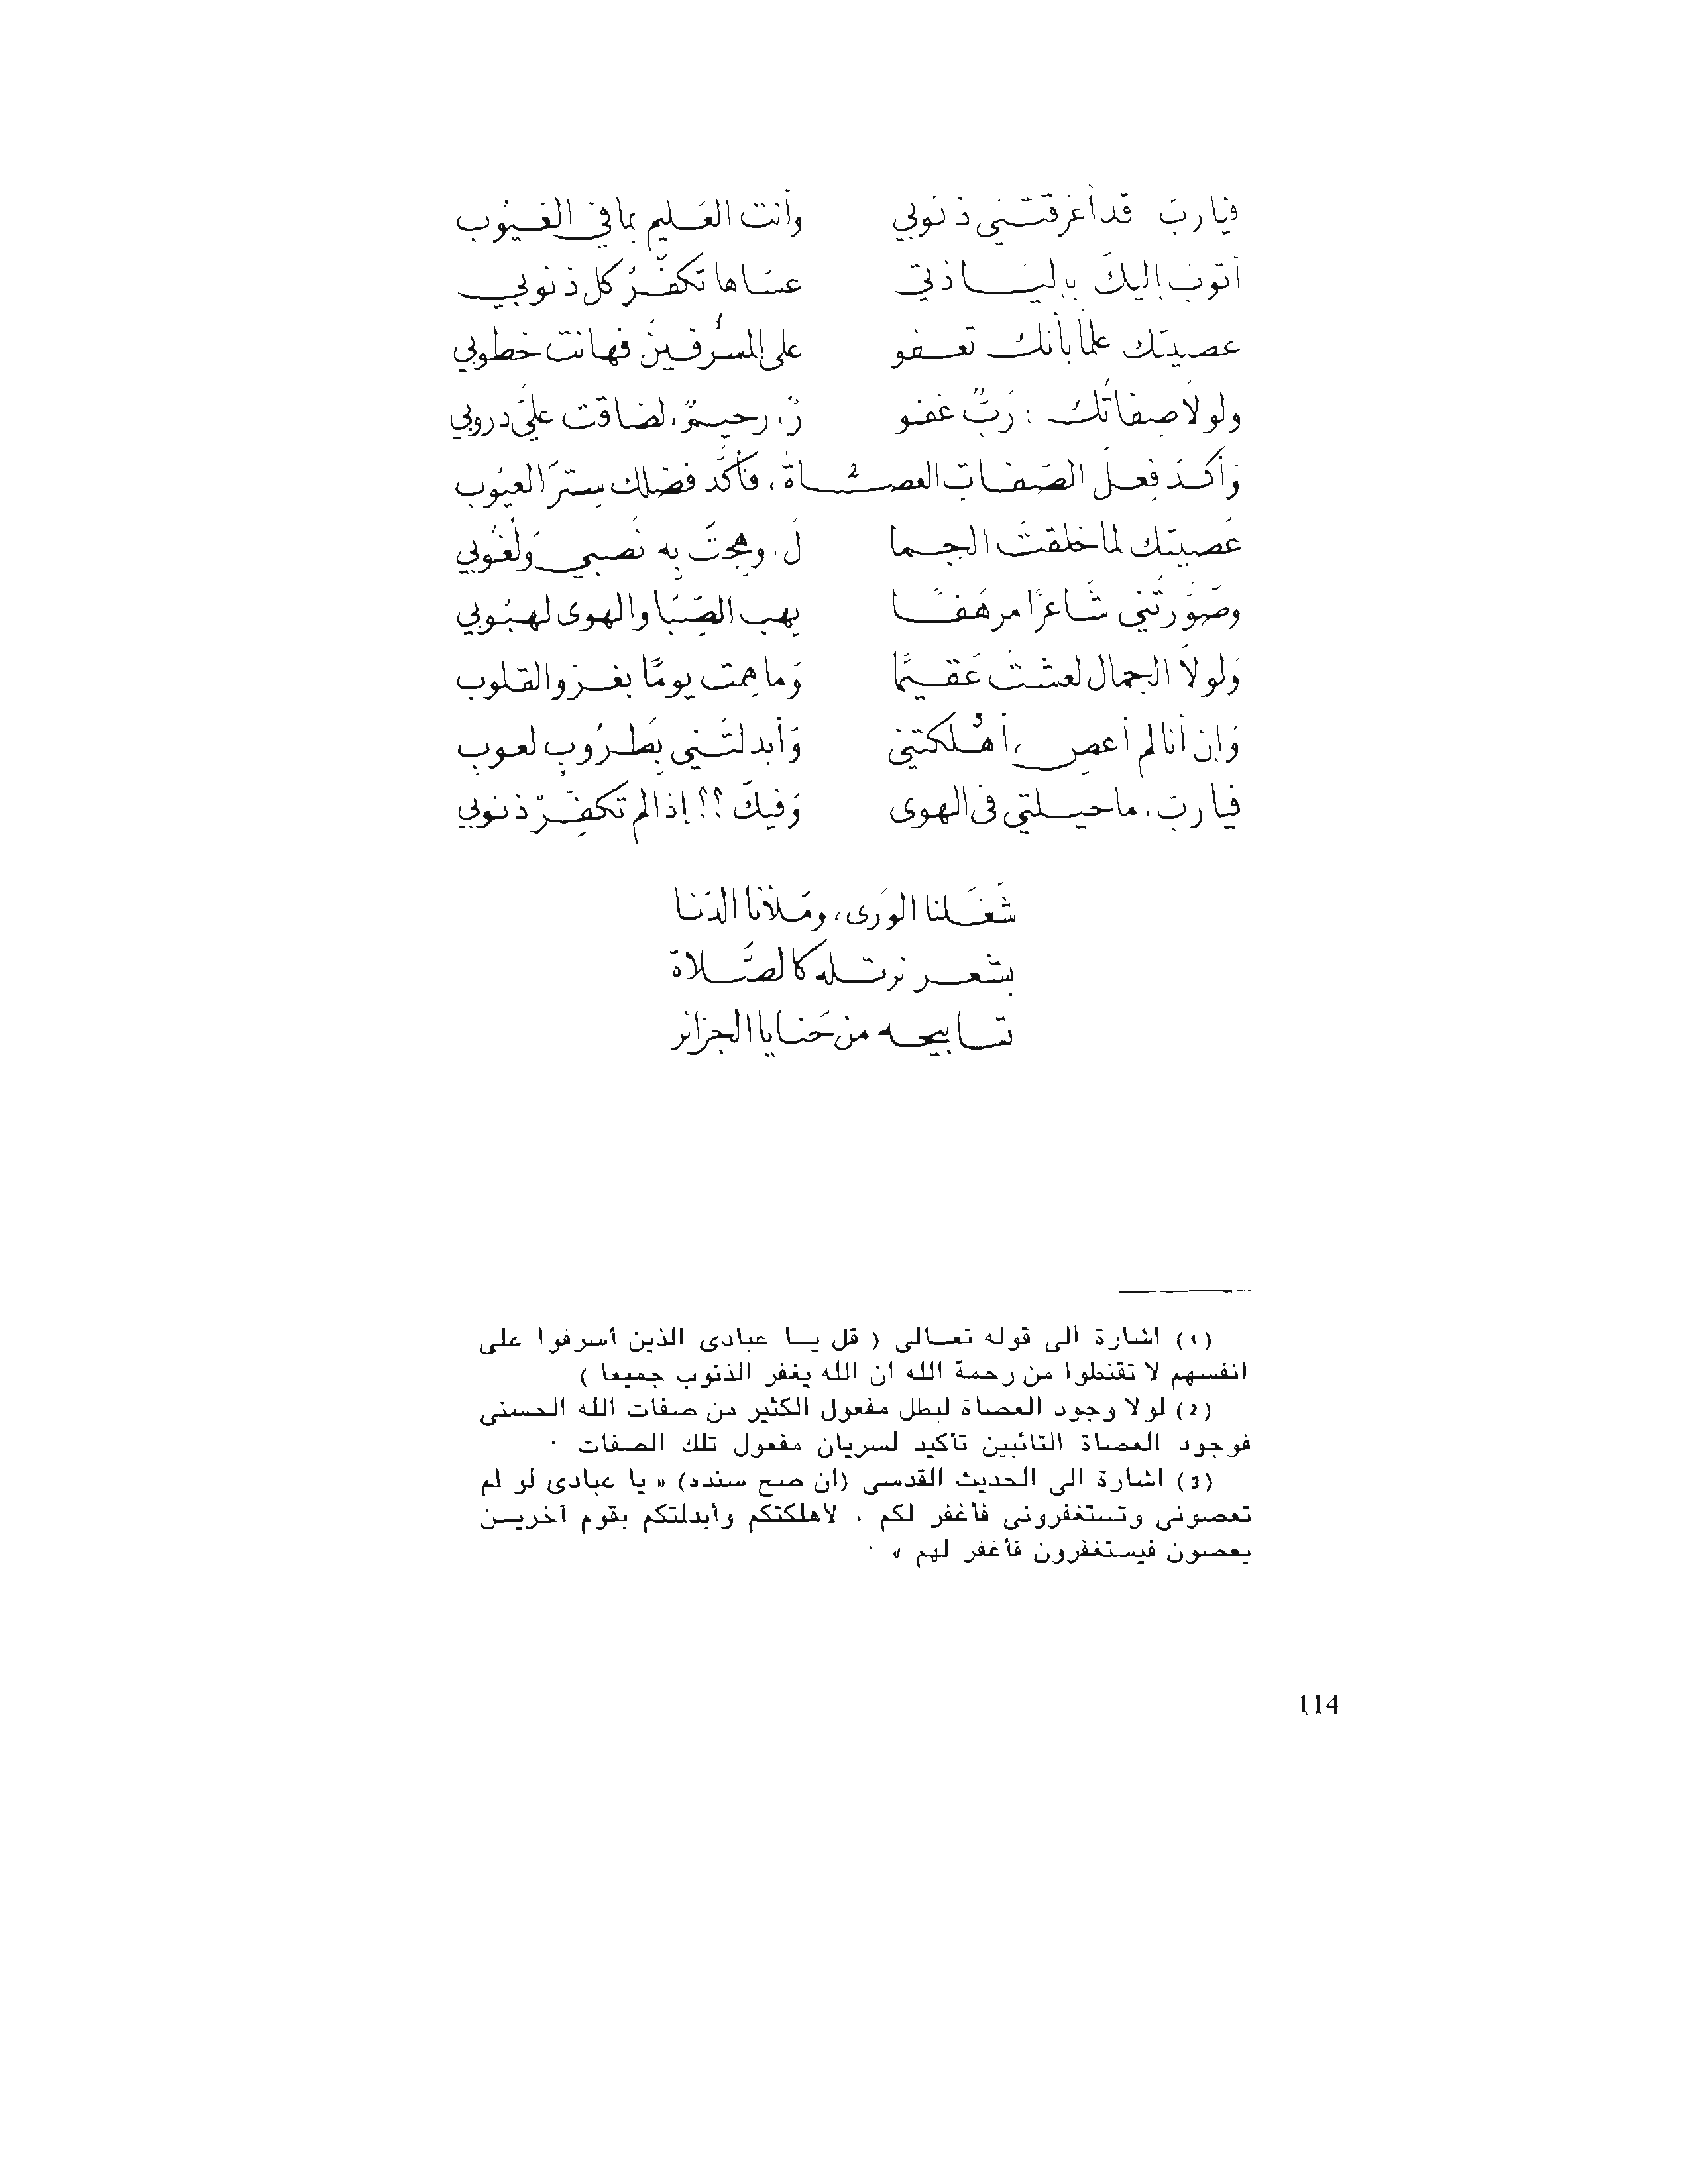 فيا ربّ قد أغرقتني ذنوبي وأنت العليم بما في الغيوب
أتوب إليك بإليـاذتي عساها تكفّر كل ذنوبي
عصيتك علمًا بأنك تعفو على المسرفين¹ فهانت خطوبي
ولولا صفاتك : ربٌّ غفو رٌ، رحيمٌ، لضاقت عليّ دروبي
وأكد فعل الصفات العصاة²، فأكّد فضلك ستر العيوب
عصيتك لما خلقت الجما ل، وهجت به نصبي ولغوبي
وصوّرتني شاعرًا مرهفًا يهب الصّبا والهوى لهبوبي
ولولا الجمال لعشت عقيمًا وما همت يومًا بغزو القلوب
وإن أنا لم أعص، أهلكتني³ وأبدلتني بطروبٍ لعوب
فيا ربّ، ما حيلتي في الهوى وفيك ؟؟! إذا لم تكفّر ذنوبي
شغلنا الورى، وملأنا الدّنا
بشعر نرتله كالصّلاة
تسابيحه من حنايا الجزائر
(1) اشارة الى قوله تعالى ( قل يا عبادى الذين أسرفوا على
انفسهم لا تقنطوا من رحمة الله ان الله يغفر الذنوب جميعا )
(2) لولا وجود العصاة لبطل مفعول الكثير من صفات الله الحسنى
فوجود العصاة التائبين تأكيد لسريان مفعول تلك الصفات .
(3) اشارة الى الحديث القدسى (ان صح سنده) « يا عبادى لو لم
تعصونى وتستغفرونى فأغفر لكم ، لأهلكتكم وأبدلتكم بقوم آخرين
يعصون فيستغفرون فأغفر لهم » .
114